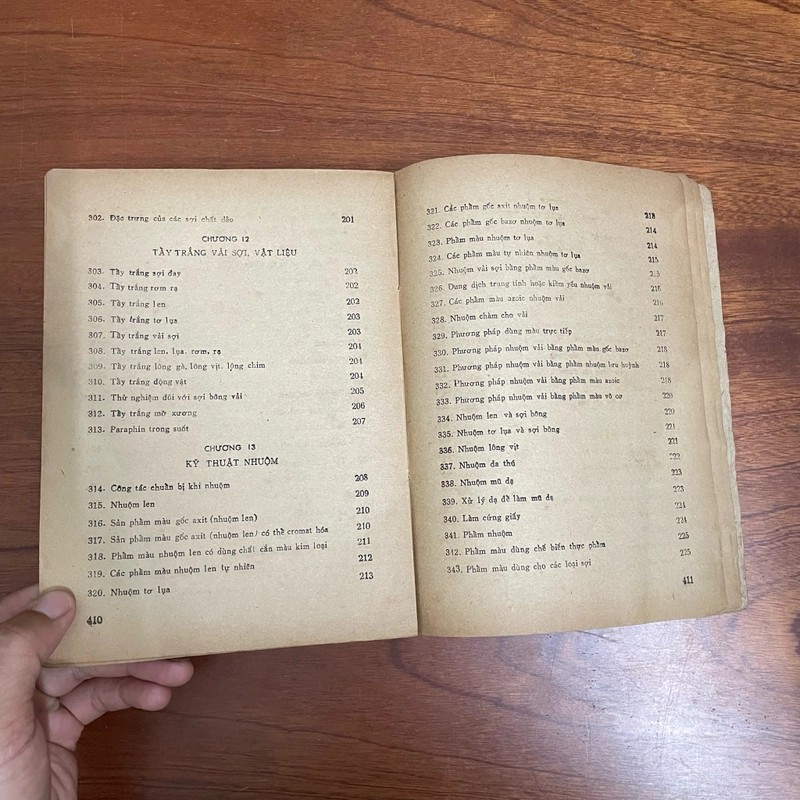 302. Đặc trưng của các sợi chất dẻo 201
CHƯƠNG 12
TẨY TRẮNG VẢI SỢI, VẬT LIỆU
303. Tẩy trắng sợi đay 202
304. Tẩy trắng rơm rạ 202
305. Tẩy trắng len 202
306. Tẩy trắng tơ lụa 203
307. Tẩy trắng vải sợi 203
308. Tẩy trắng len, lụa, rơm, rạ 204
309. Tẩy trắng lông gà, lông vịt, lông chim 204
310. Tẩy trắng động vật 204
311. Thử nghiệm đối với sợi bông vải 205
312. Tẩy trắng mỡ xương 206
313. Paraphin trong suốt 207
CHƯƠNG 13
KỸ THUẬT NHUỘM
314. Công tác chuẩn bị khi nhuộm 208
315. Nhuộm len 209
316. Sản phẩm màu gốc axit (nhuộm len) 210
317. Sản phẩm màu gốc axit (nhuộm len) có thể cromat hóa 210
318. Phẩm màu nhuộm len có dùng chất cắn màu kim loại 211
319. Các phẩm màu nhuộm len tự nhiên 212
320. Nhuộm tơ lụa 213
410
321. Các phẩm gốc axit nhuộm tơ lụa 213
322. Các phẩm gốc bazơ nhuộm tơ lụa 214
323. Phẩm màu nhuộm tơ lụa 214
324. Các phẩm màu tự nhiên nhuộm tơ lụa 215
325. Nhuộm vải sợi bằng phẩm màu gốc bazơ 215
326. Dung dịch trung tính hoặc kiềm yếu nhuộm vải 216
327. Các phẩm màu azoic nhuộm vải 216
328. Nhuộm chàm cho vải 217
329. Phương pháp dùng màu trực tiếp 217
330. Phương pháp nhuộm vải bằng phẩm màu gốc bazơ 218
331. Phương pháp nhuộm vải bằng phẩm nhuộm lưu huỳnh 218
332. Phương pháp nhuộm vải bằng phẩm màu azoic 218
333. Phương pháp nhuộm vải bằng phẩm màu vô cơ 220
334. Nhuộm len và sợi bông 220
335. Nhuộm tơ lụa và sợi bông 221
336. Nhuộm lông vịt 221
337. Nhuộm da thú 222
338. Nhuộm mũ dạ 223
339. Xử lý dạ để làm mũ dạ 223
340. Làm cứng giấy 224
341. Phẩm nhuộm 224
342. Phẩm màu dùng chế biến thực phẩm 225
343. Phẩm màu dùng cho các loại sợi 225
411